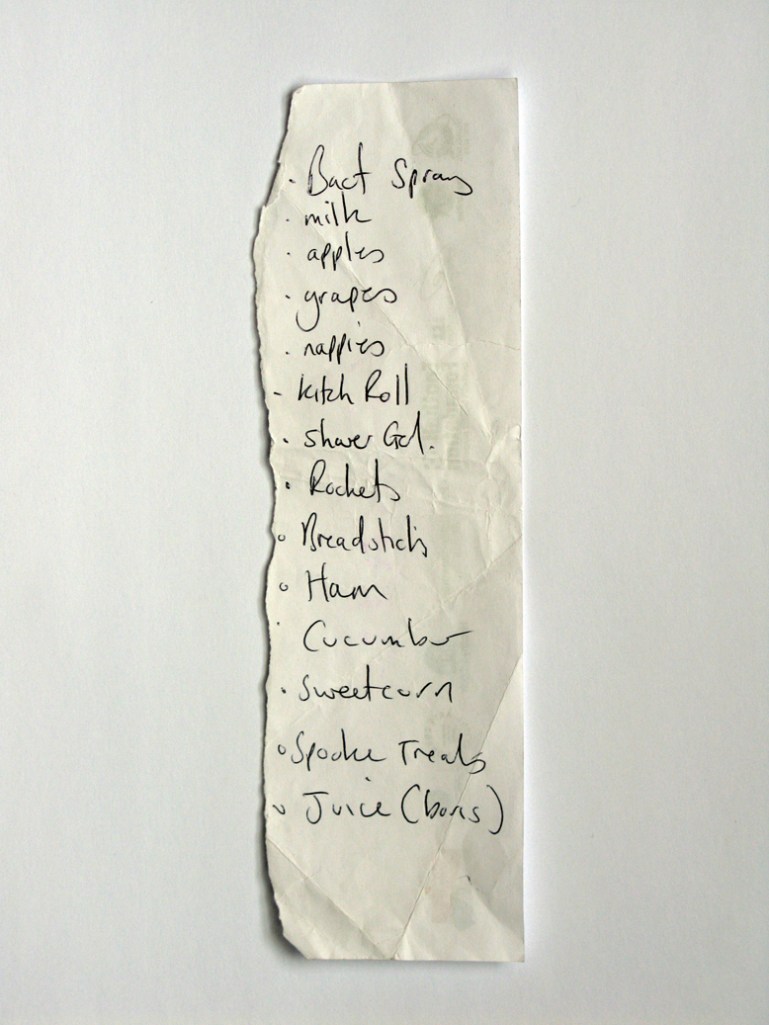 Bact Spray
milk
apples
grapes
nappies
kitch Roll
shower Gel.
Rockets
Breadsticks
Ham
Cucumber
Sweetcorn
Treats
Juice